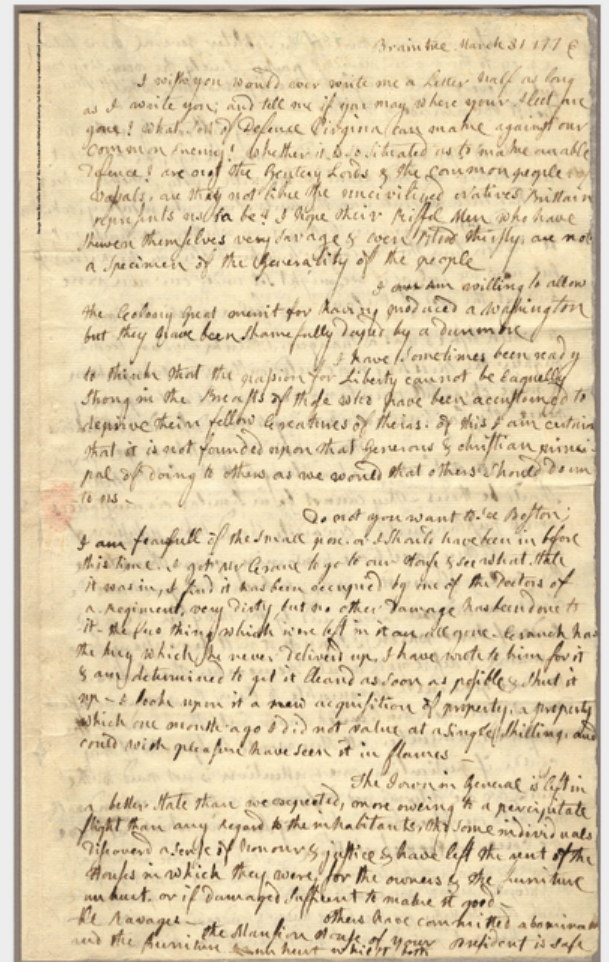 Braintree March 31 1776
I wish you would ever write me a Letter half as long
as I write you; and tell me if you may where your Fleet are
gone? What sort of Defence Virginia can make against our
common Enemy? Whether it is so situated as to make an able
Defence? are not the Gentery Lords & the common people
vassals, are they not like the uncivilized natives Brittain
represents us to be? I hope their Riffel Men who have
shewen themselves very savage & even Blood thirsty, are not
a specimen of the Generality of the people
I am willing to allow
the Colony great merrit for having produced a Washington
but they have been shamefully duped by a Dunmore
I have sometimes been ready
to think that the passion for Liberty cannot be Eaquelly
strong in the Breasts of those who have been accustomed to
deprive their fellow Creatures of theirs. of this I am certain
that it is not founded upon that generous & christian princi-
pal of doing to others as we would that others should do un
to us -
Do not you want to see Boston;
I am fearfull of the small pox, or I should have been in before
this time. I got Mr Crane to go to our House & see what state
it was in, I find it has been occupied by one of the Doctors of
a Regiment, very dirty, but no other Damage has been done to
it - the few things which were left in it are all gone. Cranch has
the key which he never deliverd up, I have wrote to him for it
& am determined to get it cleand as soon as posible & shut it
up - I look upon it a new acquisition of property, a property
which one month ago I did not value at a single shilling, and
could with pleasure have seen it in flames -
The Town in General is left in
a better state than we expected, more oweing to a percipitate
flight than any Regard to the inhabitants, tho some individuals
discoverd a sense of honour & justice & have left the rent of the
Houses in which they were, for the owners & the furniture
unhurt, or if damaged sufficent to make it good -
others have committed abominable
Ravages -
the Mansion House of your President is safe
and the furniture unhurt whilst both